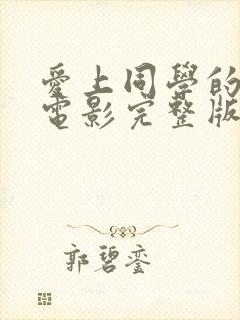 愛上同學的
電影完整版
郭碧鑾